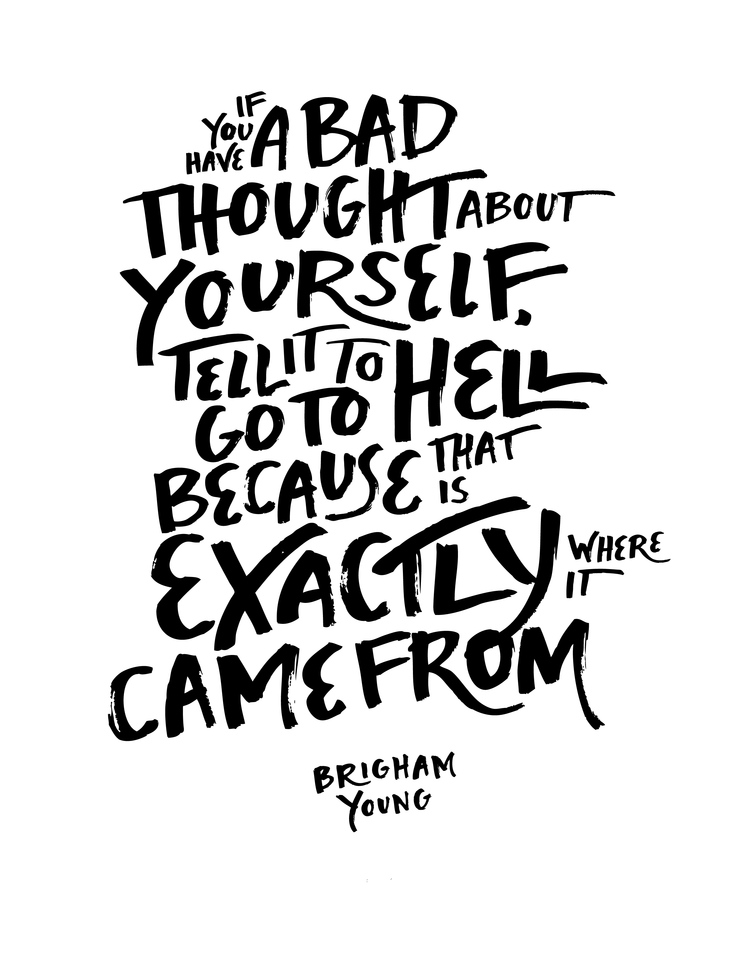 IF
YOU
HAVE A BAD
THOUGHT ABOUT
YOURSELF,
TELL IT TO HELL
GO TO
BECAUSE THAT
IS
EXACTLY WHERE
IT
CAME FROM
BRIGHAM
YOUNG